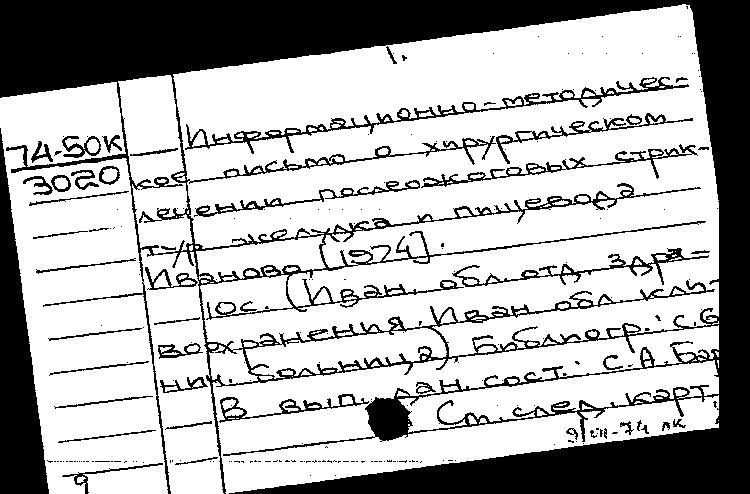 1.
Информационно-методичес-
74-50К
3020
кое письмо о хирургическом
лечении послеожоговых стрик-
тур желудка и пищевода.
Иваново, [1974].
10с. (Иван. обл. отд. здра-
воохранения. Иван обл. кли-
нич. больница). Библиогр.: с.6
В вып. дан. сост.: С.А. Бар
См. след. карт.
9